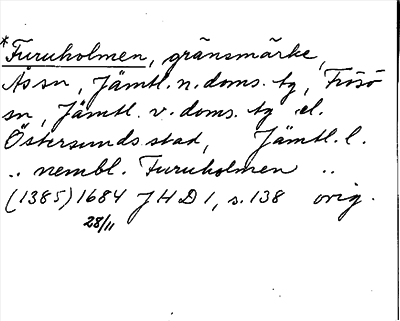 *Furuholmen, gränsmärke,
Ås sn, Jämtl. n. doms. tg, Frösö
sn, Jämtl. v. doms. tg el.
Östersunds stad, Jämtl. l.
.. nembl. Furuholmen ..
(1385) 1684 JHD 1, s. 138 orig.
28/11